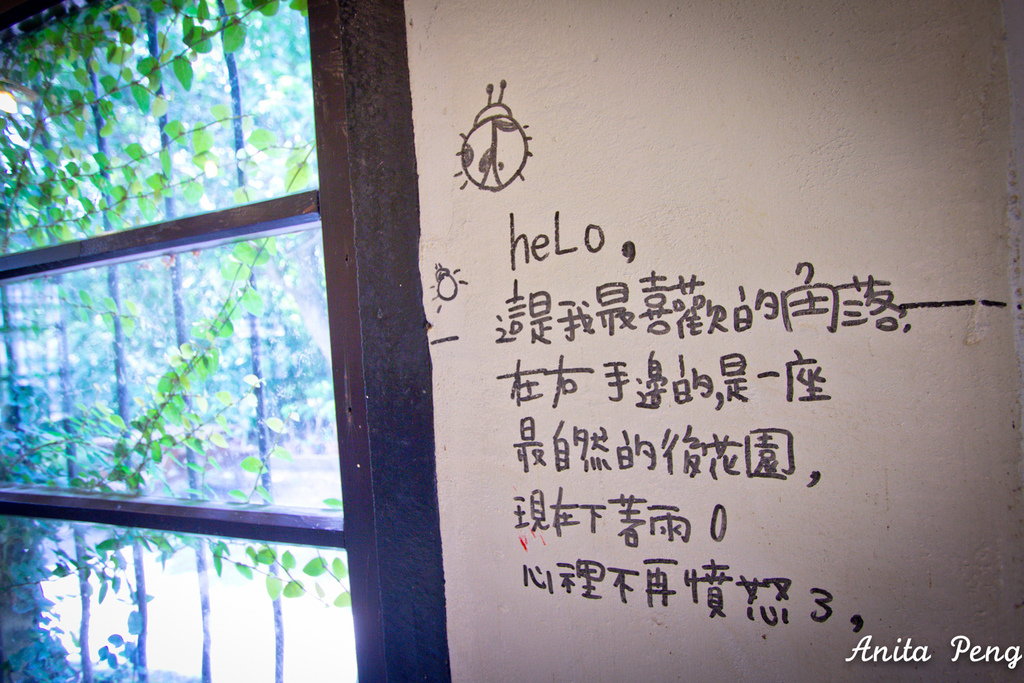 heLo,
這是我最喜歡的角落.——
在右手邊的,是一座
最自然的後花園,
現在下著雨0
心裡不再憤怒3,
Anita Peng